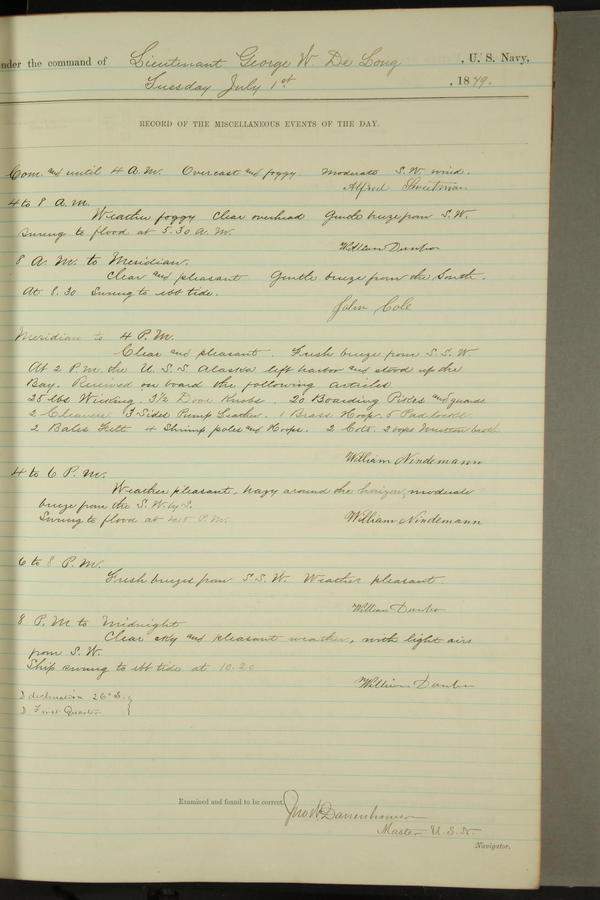 nder the command of Lieutenant George W. De Long , U. S. Navy,
Tuesday July 1st , 1879.
RECORD OF THE MISCELLANEOUS EVENTS OF THE DAY.
Com. and until 4 A.M. Overcast and foggy. Moderate S.W. wind.
Alfred Sweetman
4 to 8 A.M.
Weather foggy clear overhead Gentle breeze from S.W.
Swung to flood at 5.30 A.M.
William Dunbar
8 A.M. to Meridian.
Clear and pleasant Gentle breeze from the South.
At 8.30 Swung to ebb tide.
John Cole
Meridian to 4 P.M.
Clear and pleasant. Fresh breeze from S.S.W.
At 2 P.M. the U.S.S. Alaska left harbor and stood up the
Bay. Received on board the following articles
25 lbs Wicking. 3½ Door Knobs. 20 Boarding Pikes and guards
2 Cleavers 3 Sides Pump Leather. 1 Brass Hoop. 5 Padlocks.
2 Bales Felt 4 Shrimp poles and Hoops. 2 Cots.
William Nindemann
4 to 6 P.M.
Weather pleasant, hazy around the horizon, moderate
breeze from the S.W. by S.
Swung to flood at P.M.
William Nindemann
6 to 8 P.M.
Fresh breezes from S.S.W. Weather pleasant.
William Dunbar
8 P.M to Midnight
Clear sky and pleasant weather, with light airs
from S.W.
Ship swung to ebb tide at 10.20
William Dunbar
☽ declination 26° S.
☽ First Quarter
Examined and found to be correct.
Jno W Danenhower
Master U.S.N.
Navigator.